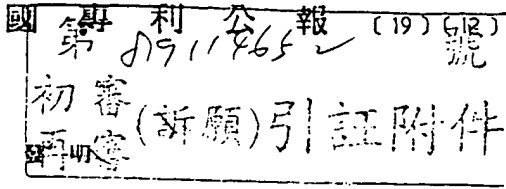 國專利公報 (19)(12)
第 89114652 號
初審
再審 (訴願)引証附件
發明